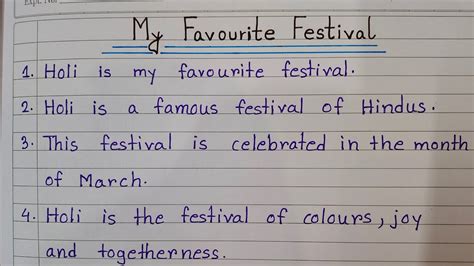 Expt. No.
My Favourite Festival
1. Holi is my favourite festival.
2. Holi is a famous festival of Hindus.
3. This festival is celebrated in the month
of March.
4. Holi is the festival of colours, joy
and togetherness.